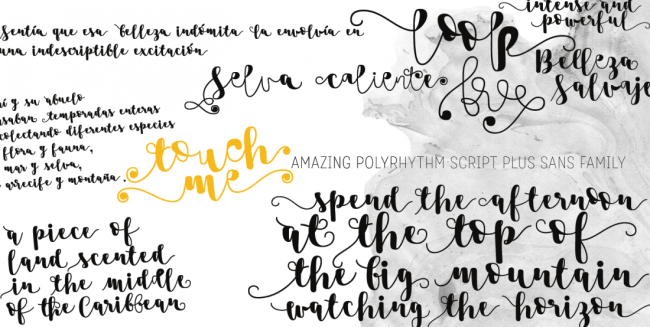 Sentía que esa belleza indómita la envolvía en
una indescriptible excitación
loop
intense and
powerful
Belleza
Salvaje
Selva caliente
free
y su abuelo
saban temporadas enteras
colectando diferentes especies
flora y fauna,
mar y selva,
arrecife y montaña.
touch
me
AMAZING POLYRHYTHM SCRIPT PLUS SANS FAMILY
a piece of
land scented
in the middle
of the Caribbean
spend the afternoon
at the top of
the big mountain
watching the horizon